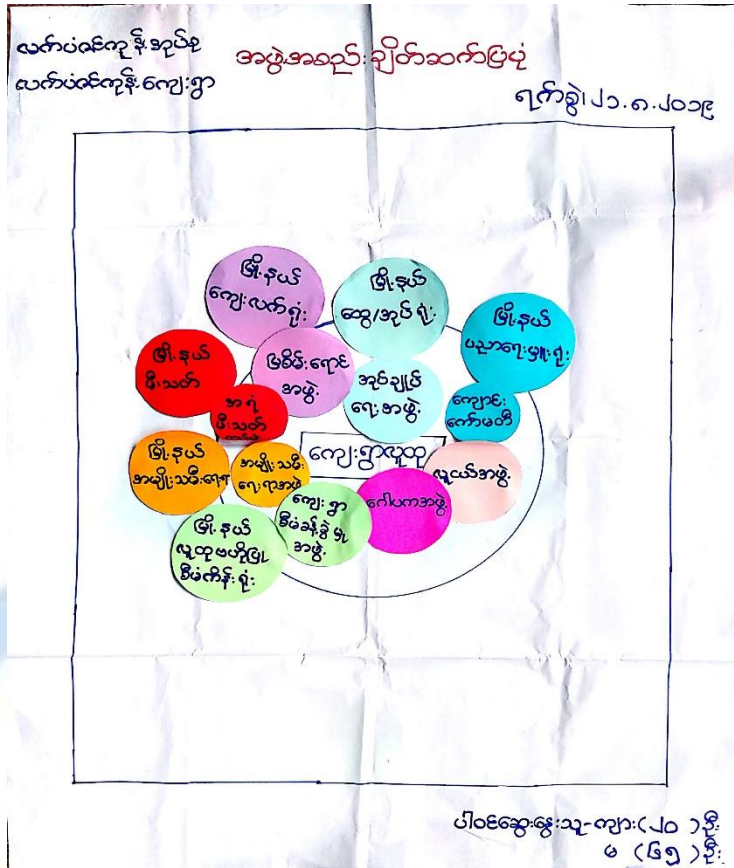 လက်ပံခင်ကုန်းအုပ်စု
လက်ပံခင်ကုန်းကျေးရွာ
အဖွဲ့အစည်းချိတ်ဆက်ပြပုံ
ရက်စွဲ၊၂၁.၈.၂၀၁၉
မြို့နယ်
ကျေးလက်ရုံး
မြို့နယ်
ထွေ/အုပ်ရုံး
မြို့နယ်
ပညာရေးမှူးရုံး
မြို့နယ်
မီးသတ်
မြစိမ်းရောင်
အဖွဲ့
အုပ်ချုပ်
ရေးအဖွဲ့
ကျောင်း
ကော်မတီ
အရံ
မီးသတ်
ကျေးရွာလူထု
မြို့နယ်
အမျိုးသမီးရေးရာ
အမျိုးသမီး
ရေးရာအဖွဲ့
လူငယ်အဖွဲ့
ဂေါပကအဖွဲ့
ကျေးရွာ
စီမံခန့်ခွဲမှု
အဖွဲ့
မြို့နယ်
လူထုဗဟိုပြု
စီမံကိန်းရုံး
ပါဝင်ဆွေးနွေးသူ-ကျား(၂၀)ဦး
မ (၆၅)ဦး